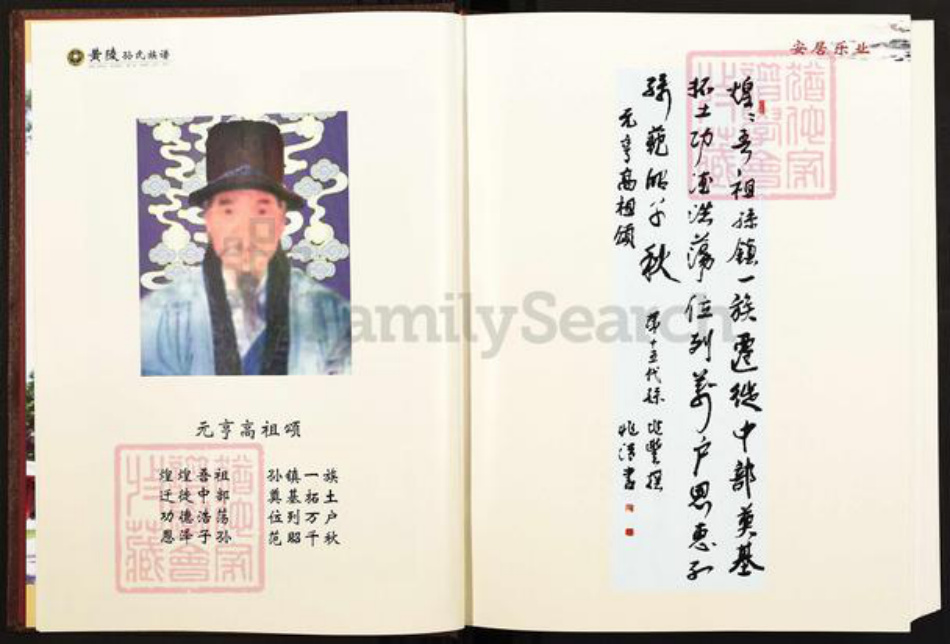 黄陵孙氏族谱
元亨高祖颂
煌煌吾祖 孙镇一族
迁徙中部 奠基拓土
功德浩荡 位列万户
恩泽子孙 范昭千秋
安居乐业
煌々吾祖孫鎮一族遷徙中部奠基
拓土功德浩蕩位列萬户恩惠子
孫範昭千秋
元亨高祖頌
第十五代孫
撰
書
FamilySearch